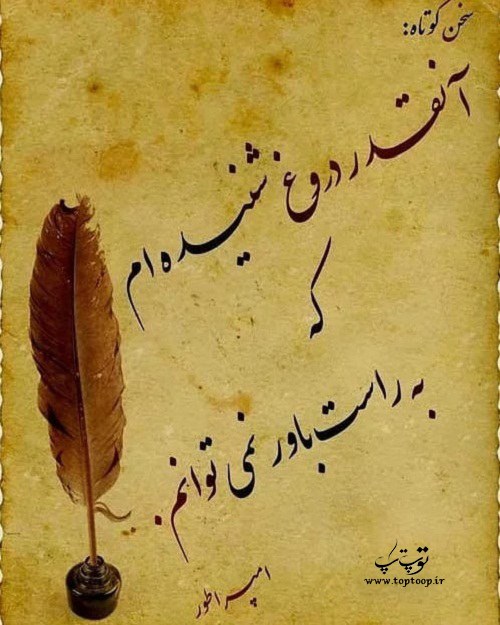 سخن کوتاه:
آنقدر دروغ شنیده ام
که
به راست باور نمی توانم.
امپراطور
توپ تاپ
www.toptoop.ir